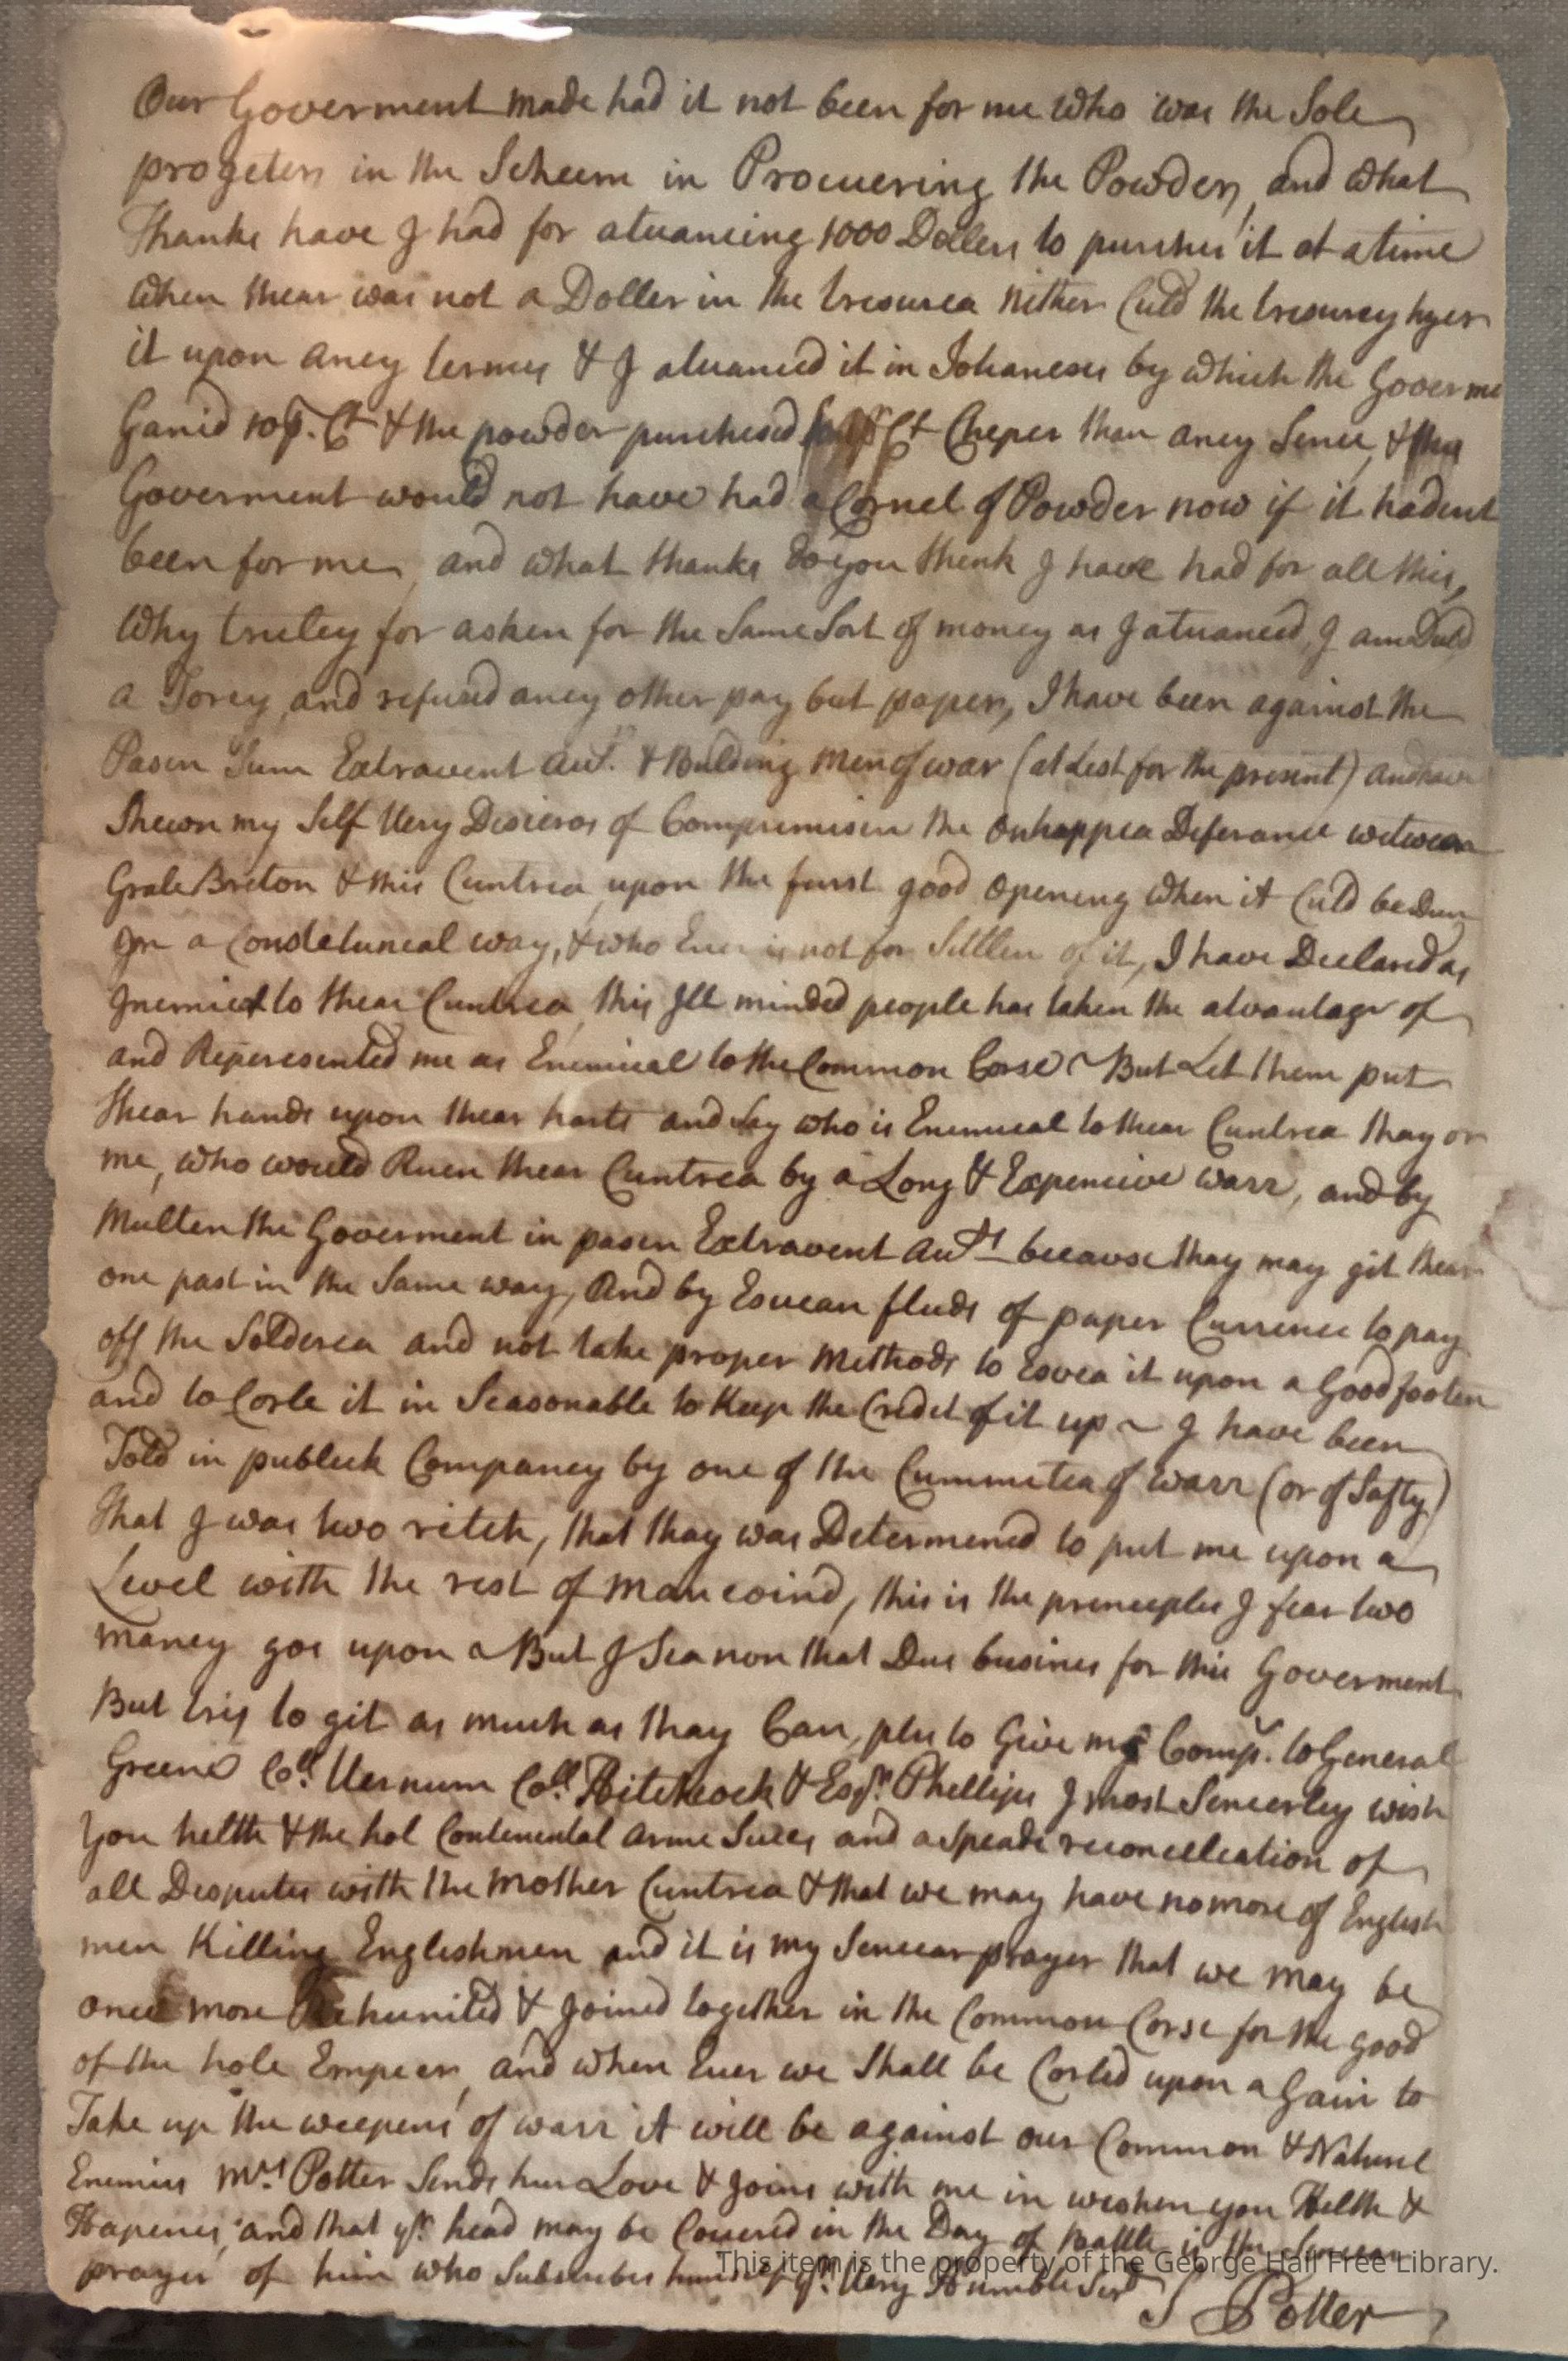 Our Goverment made had it not been for me who was the Sole
progeters in the Scheem in Procuering the Powder, and what
Thanks have I had for atuancing 1000 Dollers to purches it at a time
when thear was not a Doller in the tresurea nither Culd the tresurey hyer
it upon aney termes & I atuanced it in Johaneses by which the Goverme
Ganid 10 p. Ct & the powder purchesed Ct Cheper than aney Sence, & the
Goverment would not have had a Cornel of Powder now if it hadent
been for me, and what thanks do you think I have had for all this,
Why truley for asken for the Same Sort of money as I atuanced, I am Culd
a Torey, and refused aney other pay but paper, I have been against the
Pasen Sum Extravent Acts. & Bulding Men of war (at Lest for the present) and have
Shewn my Self Very Desieros of Compremisen the Onhappea Diferance witween
Grate Breton & this Cuntrea, upon the furst good Opening when it Culd be Dun
In a Constetuneal way, & who Ever is not for Settlen of it, I have Declared as
Inemies to thear Cuntrea, this Ill minded people has taken the atvantage of
and Reperesented me as Enemical to the Common Corse ~ But Let them put
thear hands upon thear harts and Say who is Enemical to thear Cuntrea thay or
me, who would Ruen thear Cuntrea by a Long & Expencive warr, and by
Multen the Goverment in pasen Extravent Acts because thay may git thear
one past in the Same way, And by Esuean fluds of paper Currence to pay
off the Solderea and not take proper Methods to Esuea it upon a Good footen
and to Corle it in Seasonable to Keep the Credet of it up ~ I have been
Told in publeck Companey by one of the Cummetea of warr (or of Safty)
That I was two ritch, that thay was Determened to put me upon a
Level with the rest of mancoind, this is the princeples I fear two
maney gos upon ~ But I Sea non that Dus busines for this Goverment
But trys to git as much as thay Can, ples to Give my Comp. to General
Greene Coll. Vernum Coll. Hitchcock & Esqr. Phellips I most Sencerley wish
you helth & the hol Contenental arme Suces and a Speade reconcelleation of
all Desputes with the Mother Cuntrea & that we may have no more of English
men Killing Englishmen and it is my Sencear prayer that we may be
once more Rehunited & Joined together in the Common Corse for the good
of the hole Empeer, and when Ever we Shall be Corled upon a Gain to
Take up the weepens of warr it will be against our Common & Naturel
Enemies Mrs. Potter Sends hur Love & Joins with me in weshen you Helth &
Hapenes, and that yr. head may be Couered in the Day of Battle is the Sencear
prayer of him who Subscribes himself yr. Very Humble Sert
S Potter
This item is the property of the George Hail Free Library.